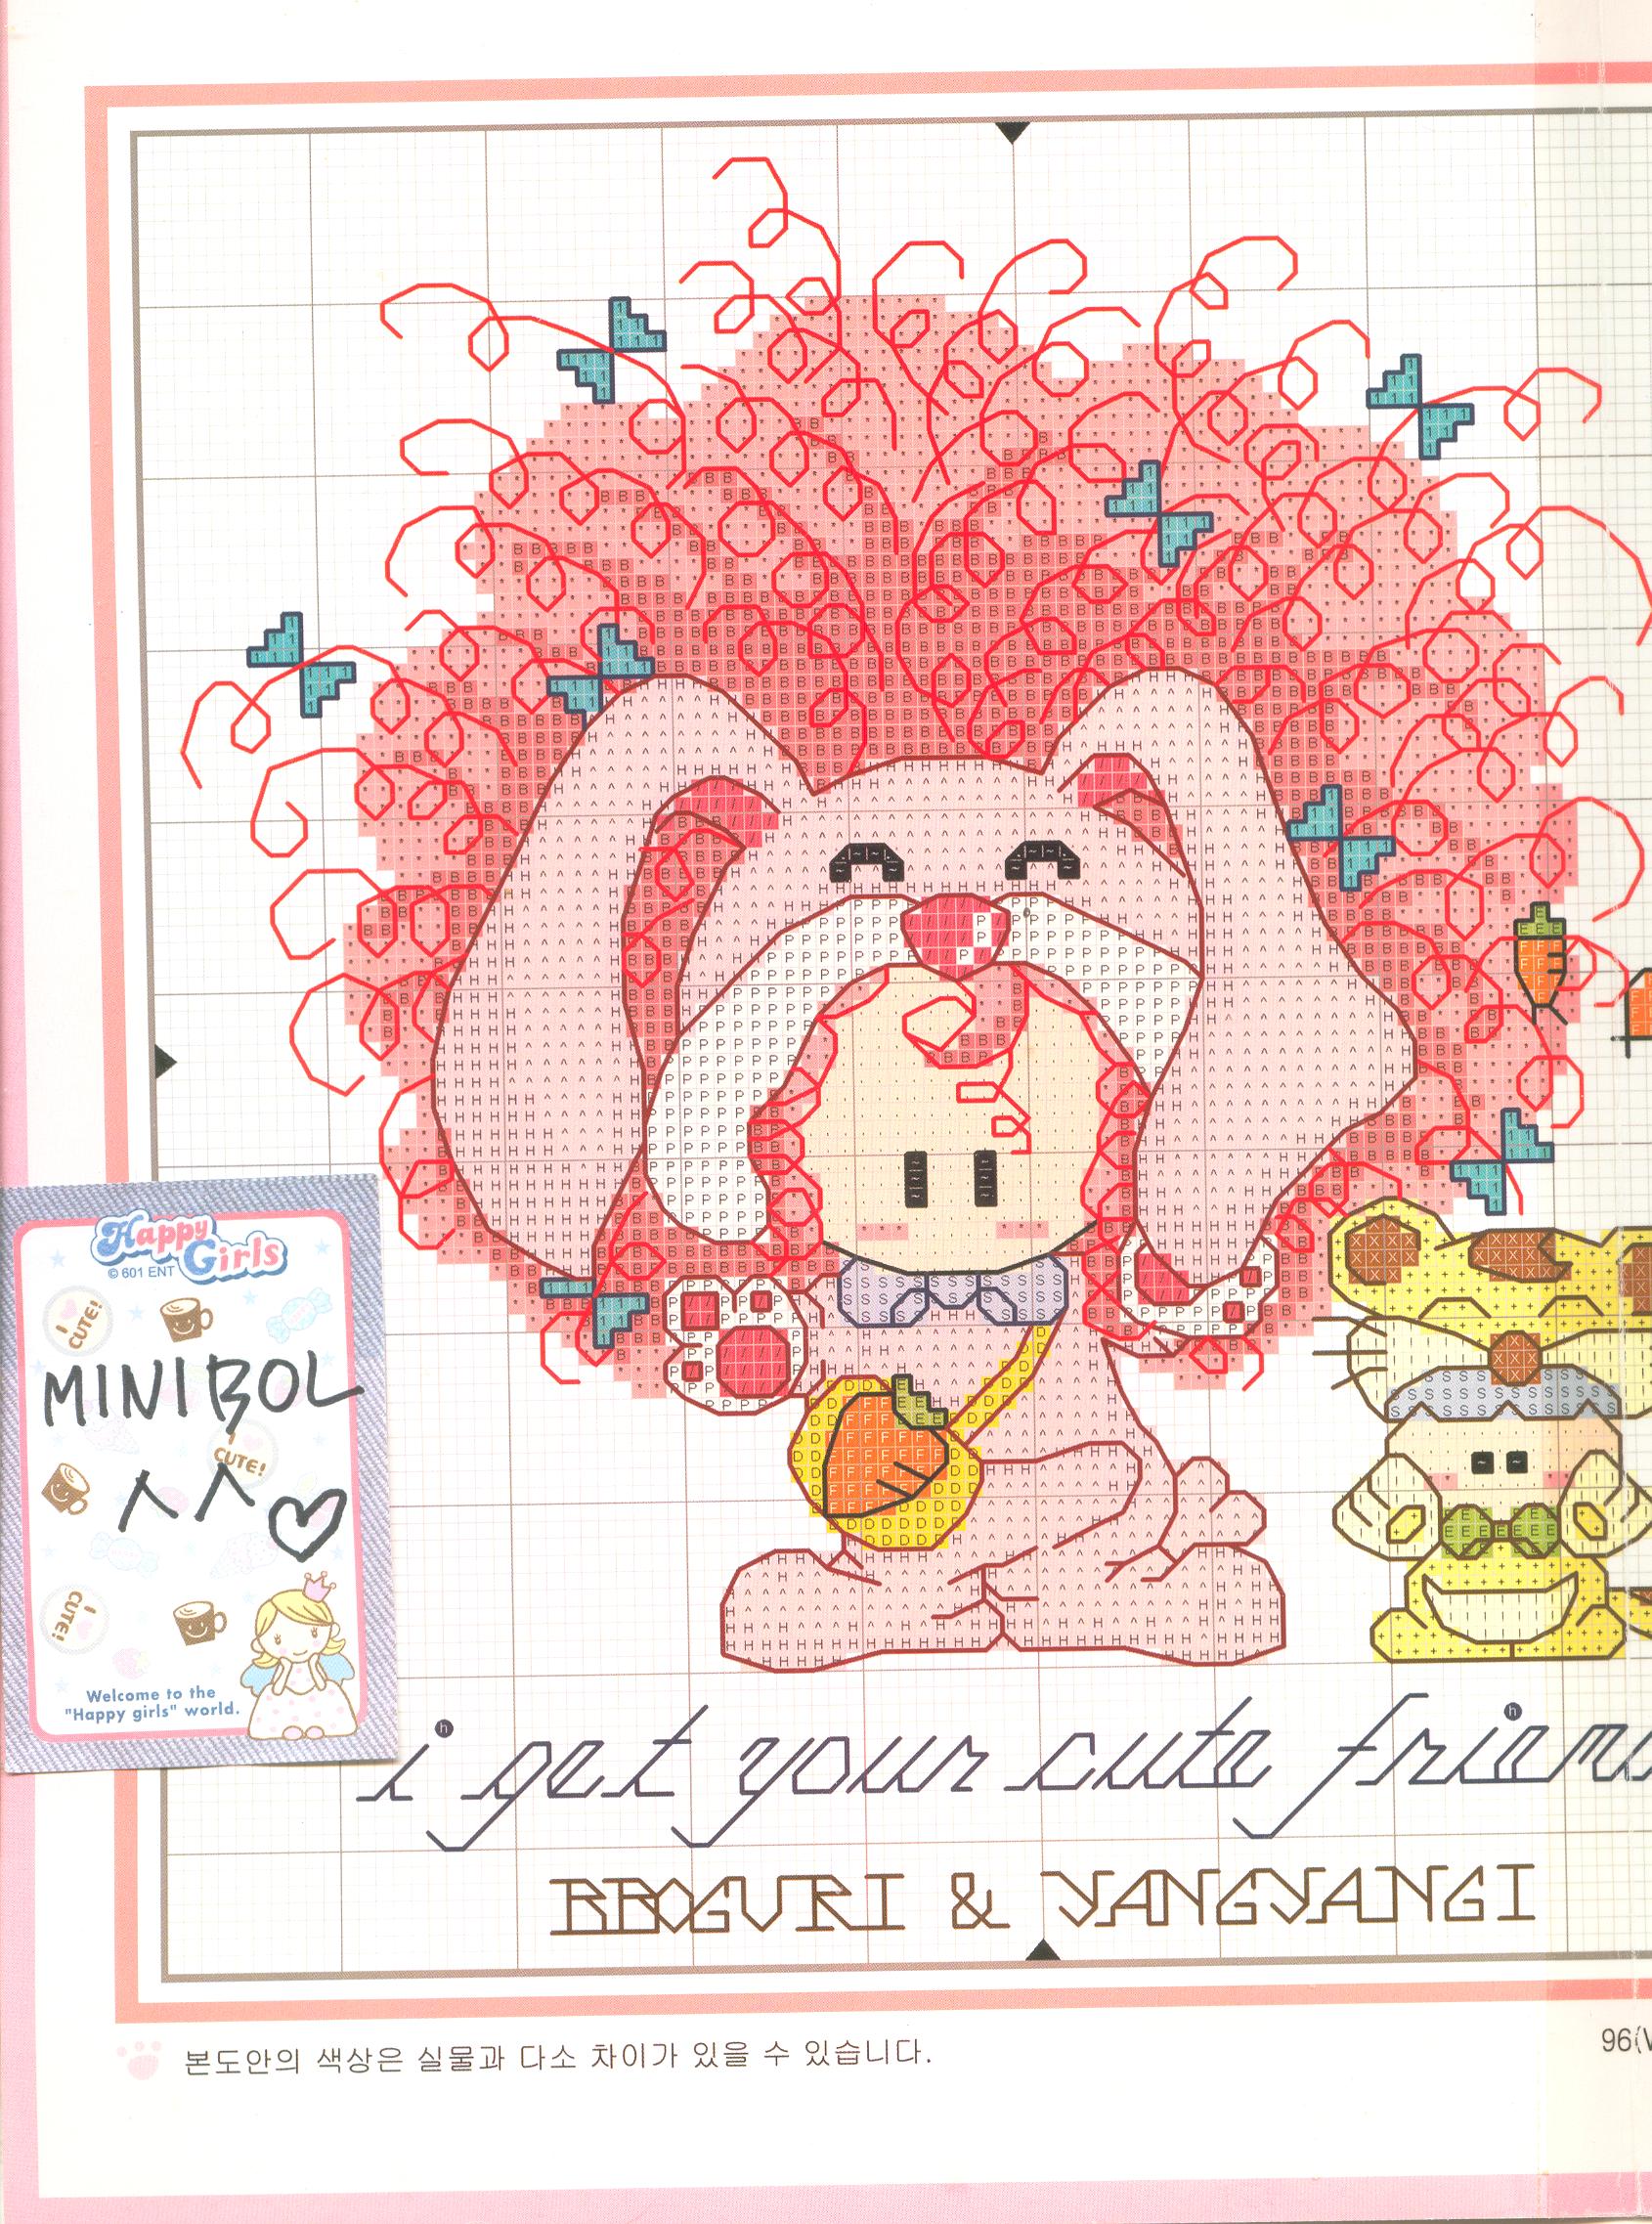 Happy
Girls
© 601 ENT
I CUTE!
MINIBOL
I CUTE!
I CUTE!
Welcome to the
"Happy girls" world.
i get your cute frien
BBOGURI & YANGYANGI
본도안의 색상은 실물과 다소 차이가 있을 수 있습니다.
96(W